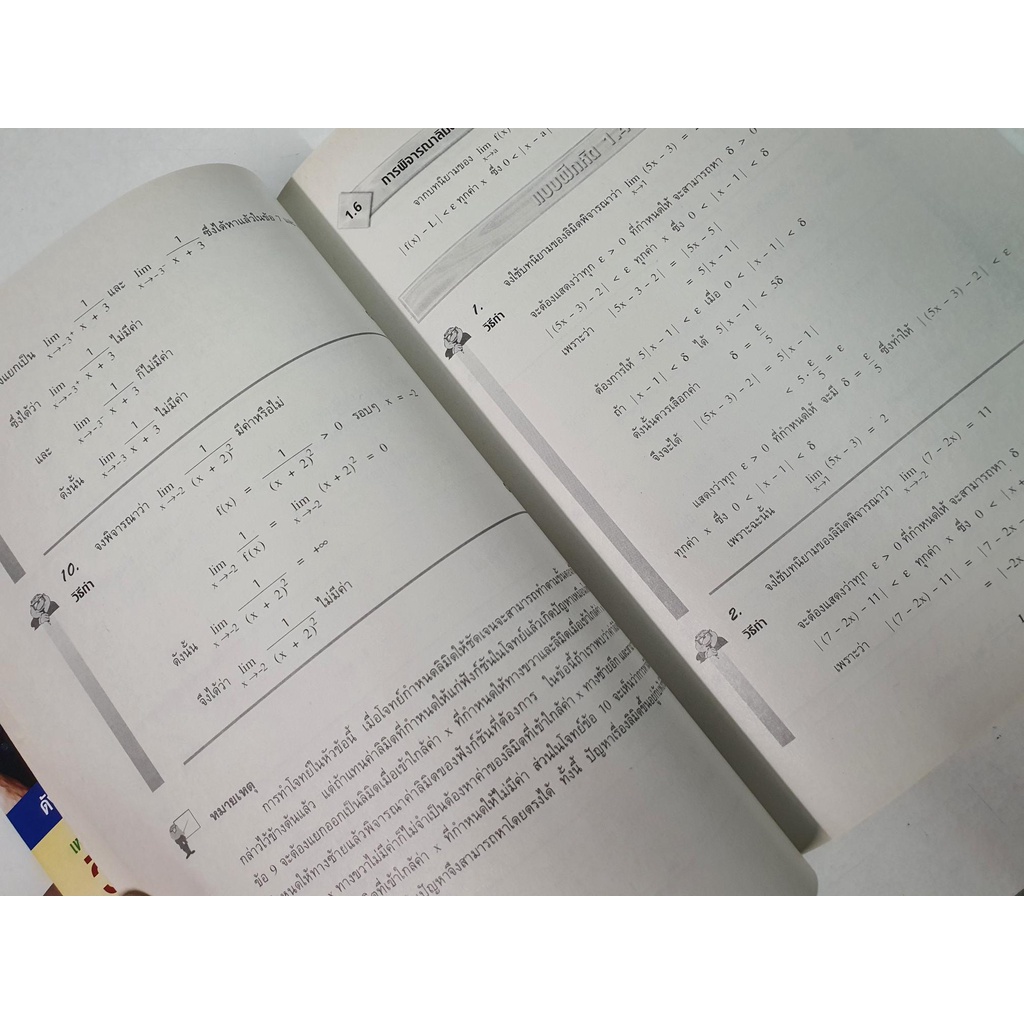 งแยกเป็น lim x→-3⁺ 1/(x + 3) และ lim x→-3⁻ 1/(x + 3) ซึ่งได้หาแล้วในข้อ 7
ซึ่งได้ว่า lim x→-3⁺ 1/(x + 3) ไม่มีค่า
และ lim x→-3⁻ 1/(x + 3) ก็ไม่มีค่า
ดังนั้น lim x→-3 1/(x + 3) ไม่มีค่า
10. จงพิจารณาว่า lim x→-2 1/(x + 2)² มีค่าหรือไม่
วิธีทำ f(x) = 1/(x + 2)² > 0 รอบๆ x = -2
lim x→-2 1/f(x) = lim x→-2 (x + 2)² = 0
ดังนั้น lim x→-2 1/(x + 2)² = +∞
จึงได้ว่า lim x→-2 1/(x + 2)² ไม่มีค่า
หมายเหตุ
การทำโจทย์ในหัวข้อนี้ เมื่อโจทย์กำหนดลิมิตให้ชัดเจนจะสามารถทำตามขั้นตอน
กล่าวไว้ข้างต้นแล้ว แต่ถ้าแทนค่าลิมิตที่กำหนดให้แก่ฟังก์ชันในโจทย์แล้วเกิดปัญหาเหมือน
ข้อ 9 จะต้องแยกออกเป็นลิมิตเมื่อเข้าใกล้ค่า x ที่กำหนดให้ทางขวาและลิมิตเมื่อเข้าใกล้ค่า
กำหนดให้ทางซ้ายแล้วพิจารณาค่าลิมิตของฟังก์ชันที่ต้องการ ในข้อนี้ถ้าเราพบว่าค่า
x ทางขวาไม่มีค่าก็ไม่จำเป็นต้องหาค่าของลิมิตที่เข้าใกล้ค่า x ทางซ้ายอีก
ที่เข้าใกล้ค่า x ที่กำหนดให้ไม่มีค่า ส่วนในโจทย์ข้อ 10 จะเห็นว่า
ปัญหาจึงสามารถหาโดยตรงได้ ทั้งนี้ ปัญหาเรื่องลิมิตขึ้นอยู่กับ
1.6 การพิจารณาลิมิต
จากบทนิยามของ lim x→a f(x)
|f(x) - L| < ε ทุกค่า x ซึ่ง 0 < |x - a|
แบบฝึกหัด
1. จงใช้บทนิยามของลิมิตพิจารณาว่า lim x→1 (5x - 3) =
วิธีทำ จะต้องแสดงว่าทุก ε > 0 ที่กำหนดให้ จะสามารถหา δ > 0
|(5x - 3) - 2| < ε ทุกค่า x ซึ่ง 0 < |x - 1| < δ
เพราะว่า |5x - 3 - 2| = |5x - 5|
= 5|x - 1|
ต้องการให้ 5|x - 1| < ε เมื่อ 0 < |x - 1| < δ
ถ้า |x - 1| < δ ได้ 5|x - 1| < 5δ
ดังนั้นควรเลือกค่า δ = ε/5
จึงจะได้ |(5x - 3) - 2| = 5|x - 1|
< 5·ε/5 = ε
แสดงว่าทุก ε > 0 ที่กำหนดให้ จะมี δ = ε/5 ซึ่งทำให้ |(5x - 3) - 2| < ε
ทุกค่า x ซึ่ง 0 < |x - 1| < δ
เพราะฉะนั้น lim x→1 (5x - 3) = 2
2. จงใช้บทนิยามของลิมิตพิจารณาว่า lim x→-2 (7 - 2x) = 11
วิธีทำ จะต้องแสดงว่าทุก ε > 0 ที่กำหนดให้ จะสามารถหา δ
|(7 - 2x) - 11| < ε ทุกค่า x ซึ่ง 0 < |x +
เพราะว่า |(7 - 2x) - 11| = |7 - 2x -
= |-2x